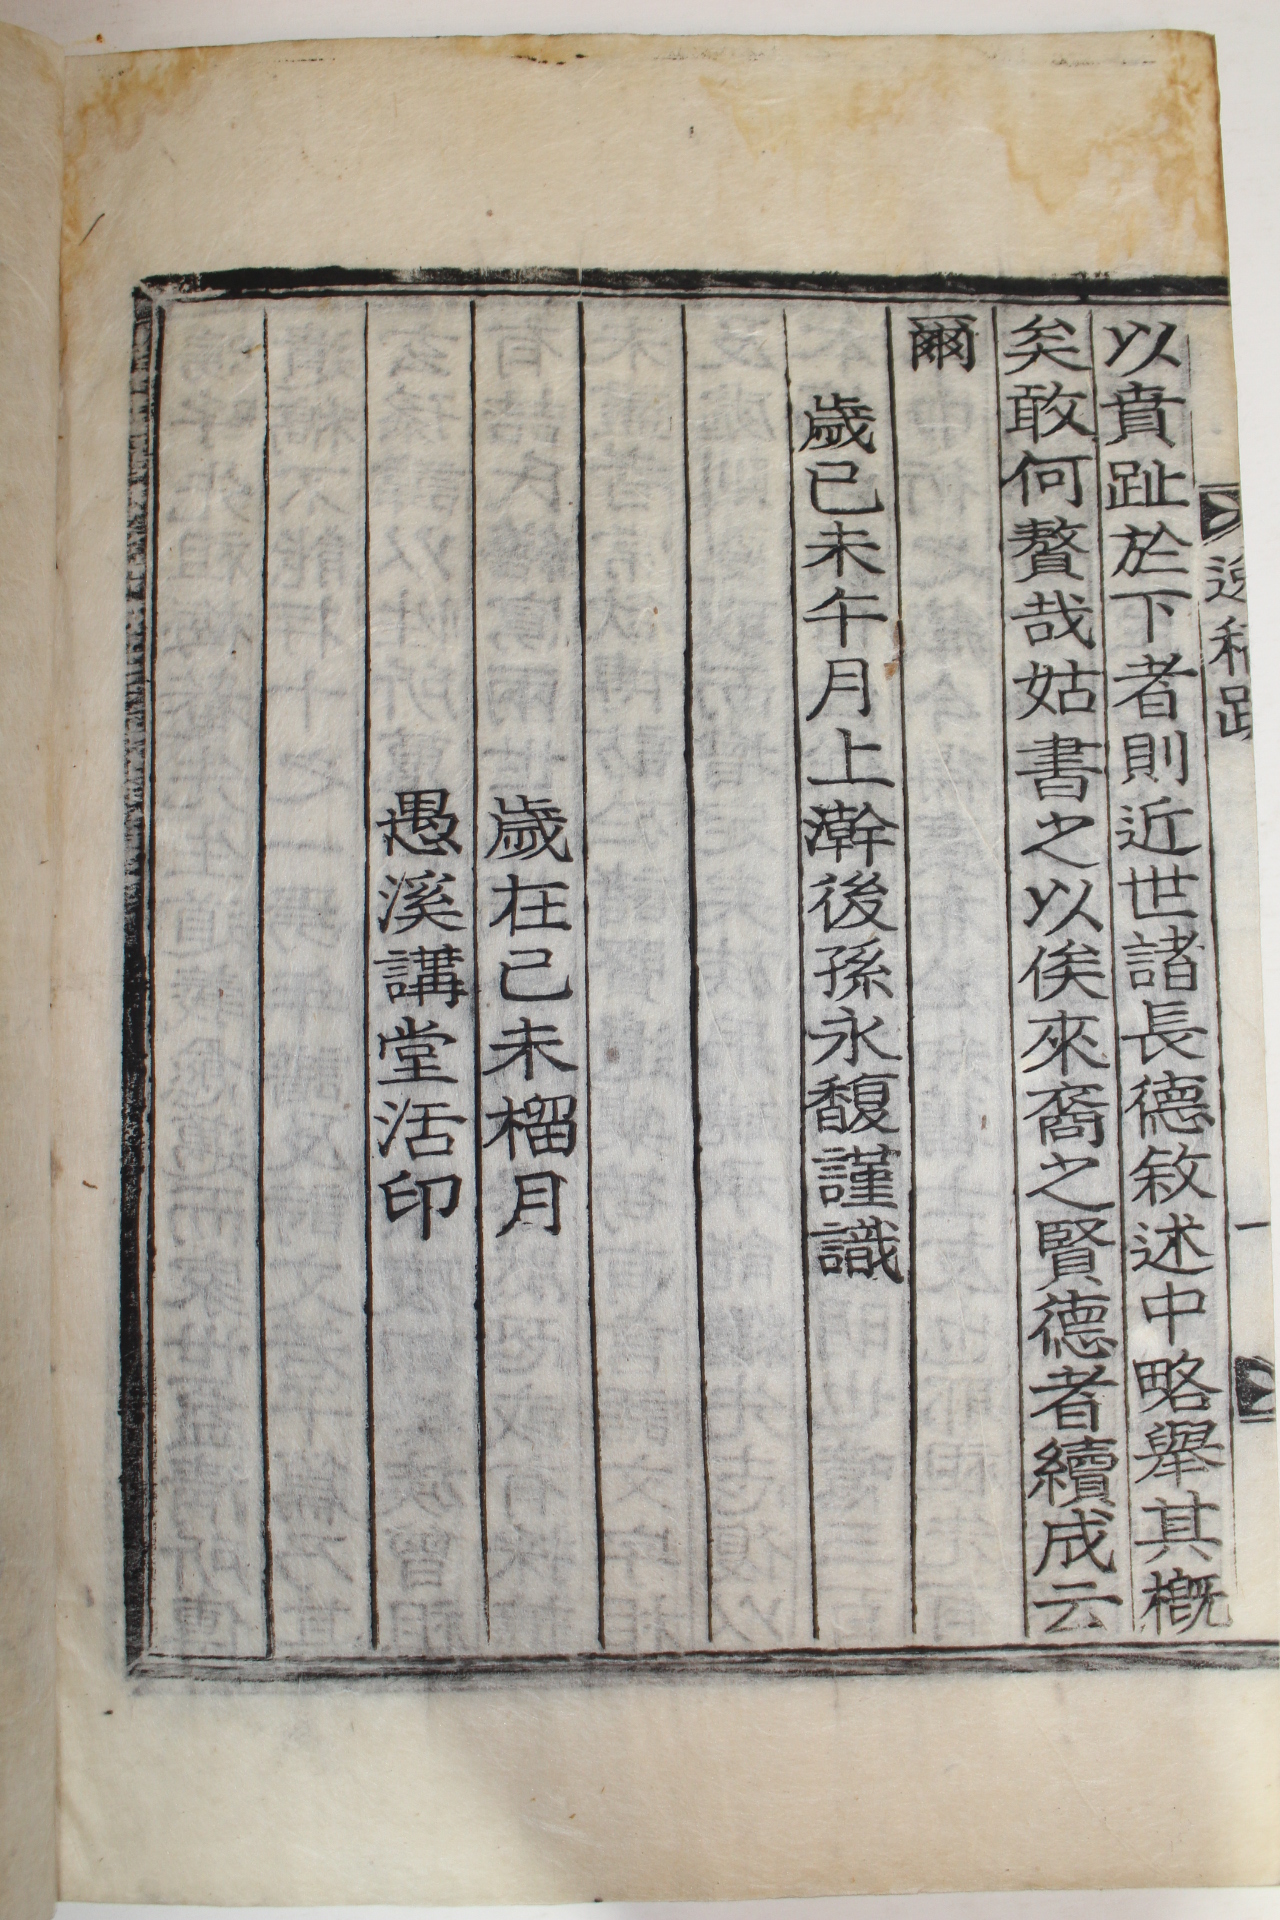 逸稿跋
一
以賁趾於下者則近世諸長德敘述中略舉其槪
矣敢何贅哉姑書之以俟來裔之賢德者續成云
爾
歲己未午月上澣後孫永馥謹識
歲在己未榴月
愚溪講堂活印